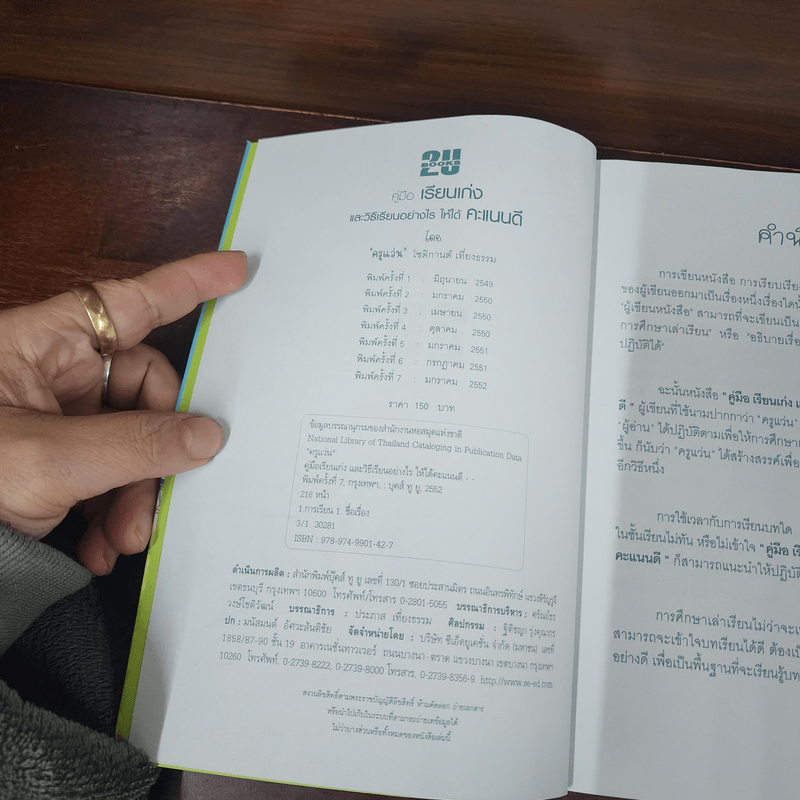 2U
BOOKS
คู่มือ เรียนเก่ง
และวิธีเรียนอย่างไร ให้ได้ คะแนนดี
โดย
"ครูแว่น" โชติกานต์ เที่ยงธรรม
พิมพ์ครั้งที่ 1 : มิถุนายน 2549
พิมพ์ครั้งที่ 2 : มกราคม 2550
พิมพ์ครั้งที่ 3 : เมษายน 2550
พิมพ์ครั้งที่ 4 : ตุลาคม 2550
พิมพ์ครั้งที่ 5 : มกราคม 2551
พิมพ์ครั้งที่ 6 : กรกฎาคม 2551
พิมพ์ครั้งที่ 7 : มกราคม 2552
ราคา 150 บาท
ข้อมูลบรรณานุกรมของสำนักงานหอสมุดแห่งชาติ
National Library of Thailand Cataloging in Publication Data
"ครูแว่น"
คู่มือเรียนเก่ง และวิธีเรียนอย่างไร ให้ได้คะแนนดี - -
พิมพ์ครั้งที่ 7, กรุงเทพฯ. : บุคส์ ทู ยู, 2552
216 หน้า
1.การเรียน 1. ชื่อเรื่อง
3/1. 30281
ISBN : 978-974-9901-42-7
ดำเนินการผลิต : สำนักพิมพ์บุ๊คส์ ทู ยู เลขที่ 130/1 ซอยประสานมิตร ถนนอินทรพิทักษ์ แขวงหิรัญรูจี
เขตธนบุรี กรุงเทพฯ 10600 โทรศัพท์/โทรสาร 0-2801-5055 บรรณาธิการบริหาร : ศรัณย์ธร
วงษ์โชติวัฒน์ บรรณาธิการ : ประภาส เที่ยงธรรม ศิลปกรรม : ฐิติชญา รุ่งคุณากร
ปก : มนัสมนต์ อัศวะสันติชัย จัดจำหน่ายโดย : บริษัท ซีเอ็ดยูเคชั่น จำกัด (มหาชน) เลขที่
1858/87-90 ชั้น 19 อาคารเนชั่นทาวเวอร์ ถนนบางนา-ตราด แขวงบางนา เขตบางนา กรุงเทพฯ
10260 โทรศัพท์. 0-2739-8222, 0-2739-8000 โทรสาร. 0-2739-8356-9 http://www.se-ed.com
สงวนลิขสิทธิ์ตามพระราชบัญญัติลิขสิทธิ์ ห้ามคัดลอก ถ่ายเอกสาร
หรือนำไปเก็บในระบบที่สามารถถ่ายเทข้อมูลได้
ไม่ว่าบางส่วนหรือทั้งหมดของหนังสือเล่มนี้
คำนำ
การเขียนหนังสือ การเรียบเรียง
ของผู้เขียนออกมาเป็นเรื่องหนึ่งเรื่องใดนั้น
"ผู้เขียนหนังสือ" สามารถที่จะเขียนเป็น
การศึกษาเล่าเรียน" หรือ "อธิบายเรื่อง
ปฏิบัติได้"
ฉะนั้นหนังสือ "คู่มือ เรียนเก่ง
ดี " ผู้เขียนที่ใช้นามปากกาว่า "ครูแว่น"
"ผู้อ่าน" ได้ปฏิบัติตามเพื่อให้การศึกษา
ขึ้น ก็นับว่า "ครูแว่น" ได้สร้างสรรค์เพื่อ
อีกวิธีหนึ่ง
การใช้เวลากับการเรียนบทใด
ในชั้นเรียนไม่ทัน หรือไม่เข้าใจ "คู่มือ
คะแนนดี " ก็สามารถแนะนำให้ปฏิบัติ
การศึกษาเล่าเรียนไม่ว่าจะ
สามารถจะเข้าใจบทเรียนได้ดี ต้อง
อย่างดี เพื่อเป็นพื้นฐานที่จะเรียนรู้